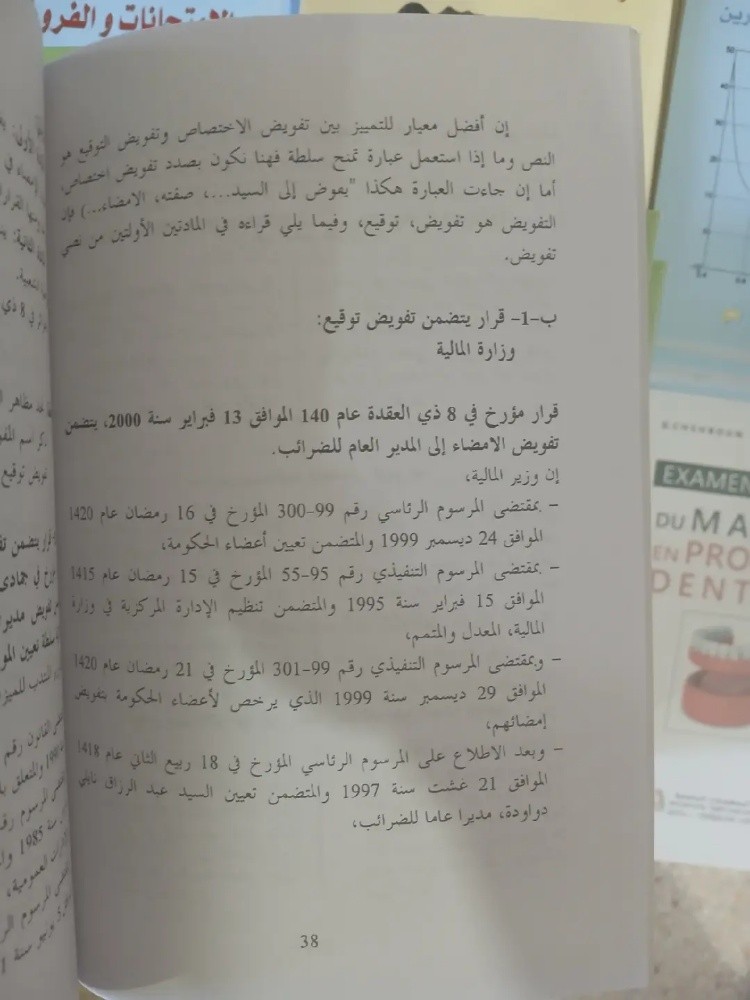 الامتحانات و الفرو
إن أفضل معيار للتمييز بين تفويض الاختصاص وتفويض التوقيع هو
النص وما إذا استعمل عبارة تمنح سلطة فهنا نكون بصدد تفويض اختصاص،
أما إن جاءت العبارة هكذا "يفوض إلى السيد...، صفته، الامضاء...) فإن
التفويض هو تفويض، توقيع، وفيما يلي قراءه في المادتين الأولتين من نصي
تفويض.
ب-1- قرار يتضمن تفويض توقيع:
وزارة المالية
قرار مؤرخ في 8 ذي العقدة عام 140 الموافق 13 فبراير سنة 2000، يتضمن
تفويض الامضاء إلى المدير العام للضرائب.
إن وزير المالية،
– بمقتضى المرسوم الرئاسي رقم 99-300 المؤرخ في 16 رمضان عام 1420
الموافق 24 ديسمبر 1999 والمتضمن تعيين أعضاء الحكومة،
– بمقتضى المرسوم التنفيذي رقم 95-55 المؤرخ في 15 رمضان عام 1415
الموافق 15 فبراير سنة 1995 والمتضمن تنظيم الإدارة المركزية في وزارة
المالية، المعدل والمتمم،
– وبمقتضى المرسوم التنفيذي رقم 99-301 المؤرخ في 21 رمضان عام 1420
الموافق 29 ديسمبر سنة 1999 الذي يرخص لأعضاء الحكومة بتفويض
إمضائهم،
– وبعد الاطلاع على المرسوم الرئاسي المؤرخ في 18 ربيع الثاني عام 1418
الموافق 21 غشت سنة 1997 والمتضمن تعيين السيد عبد الرزاق نايلي
دواودة، مديرا عاما للضرائب،
38
EXAMEN
DU MA
EN PRO
DENT